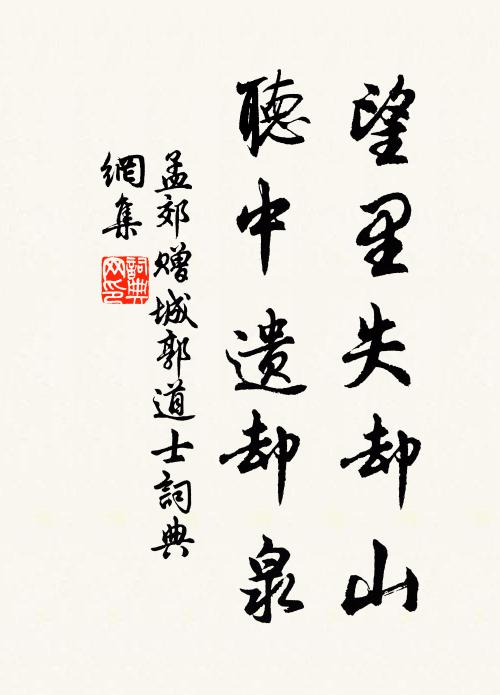 望里失却山
聽中遗却泉
孟郊赠城郭道士詞典
網集
詞典
网印